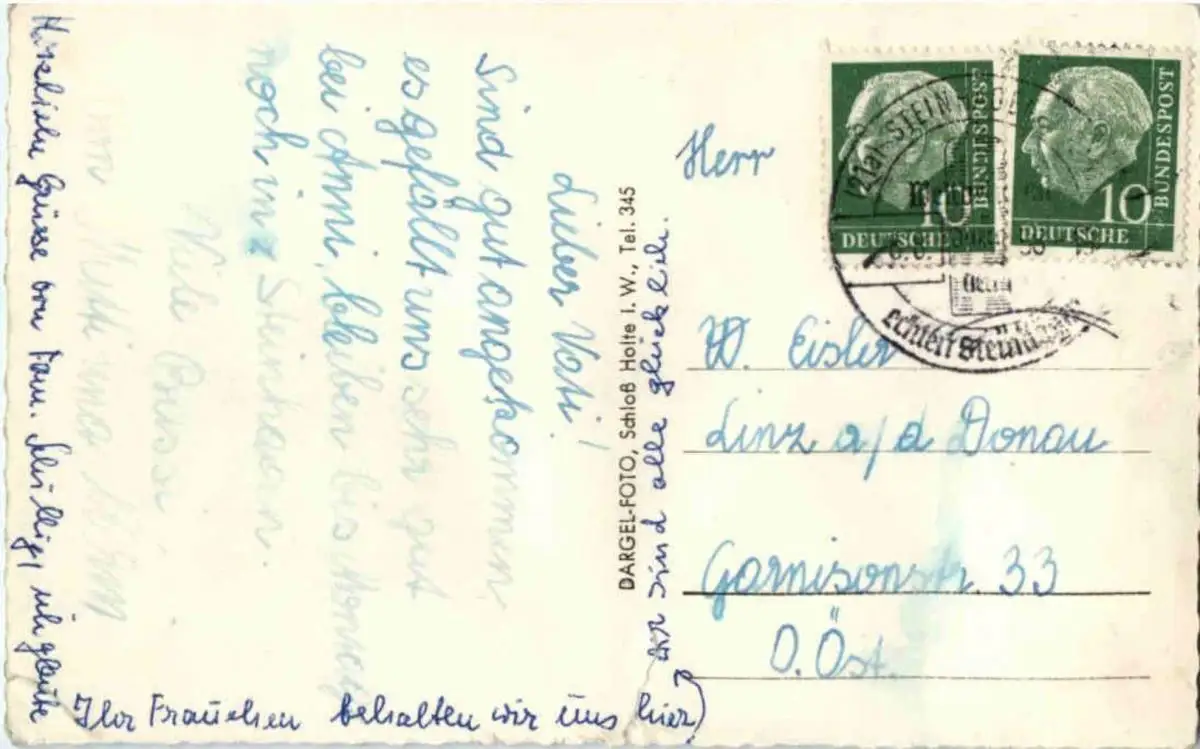 Lieber Vati!
Sind gut angekommen,
es gefällt uns sehr gut
bei Anni, bleiben bis
noch in Steinhagen.
Viele Grüsse
Mutti und
Herzliche Grüsse von Fam.
Ihr Frauchen behalten wir uns hier
wir sind alle glücklich.
DARGEL-FOTO, Schloß Holte i. W., Tel. 345
Herr
W. Eisler
Linz a/d Donau
Garnisonstr. 33
O. Öst.
10
DEUTSCHE
BUNDESPOST
10
DEUTSCHE
BUNDESPOST
(21a) STEINHAGEN
echten Steinhäger